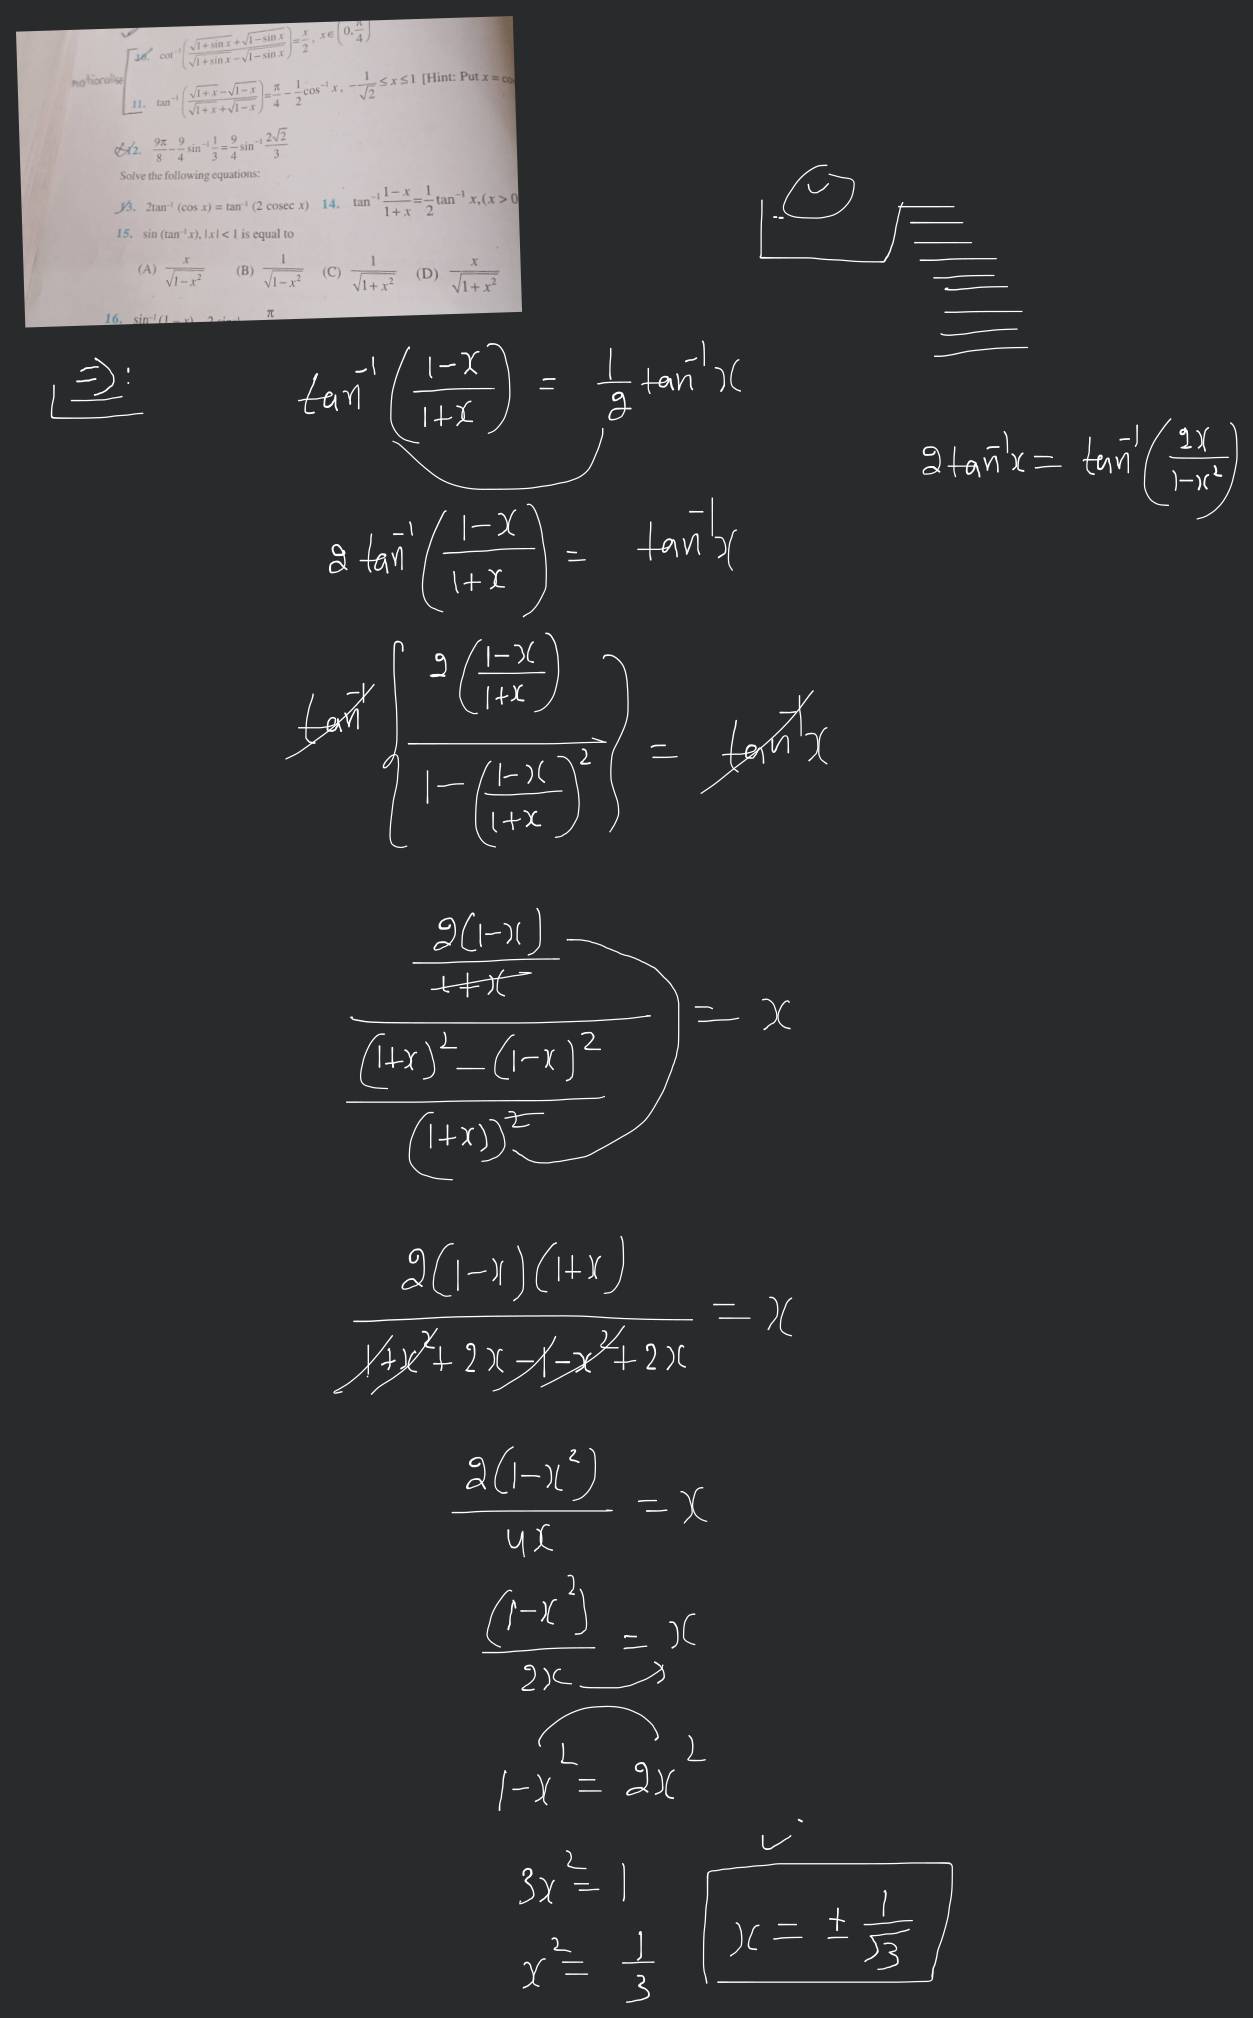 rationalise
10. cot⁻¹((√(1+sin x)+√(1−sin x))/(√(1+sin x)−√(1−sin x))) = x/2, x ∈ (0, π/4)
11. tan⁻¹((√(1+x)−√(1−x))/(√(1+x)+√(1−x))) = π/4 − 1/2 cos⁻¹ x, −1/√2 ≤ x ≤ 1 [Hint: Put x =
12. 9π/8 − 9/4 sin⁻¹ 1/3 = 9/4 sin⁻¹ 2√2/3
Solve the following equations:
13. 2tan⁻¹ (cos x) = tan⁻¹ (2 cosec x) 14. tan⁻¹ (1−x)/(1+x) = 1/2 tan⁻¹ x, (x > 0
15. sin (tan⁻¹x), |x| < 1 is equal to
(A) x/√(1−x²) (B) 1/√(1−x²) (C) 1/√(1+x²) (D) x/√(1+x²)
16.
⇒:
tan⁻¹((1−x)/(1+x)) = 1/2 tan⁻¹x
2tan⁻¹x = tan⁻¹(2x/(1−x²))
2 tan⁻¹((1−x)/(1+x)) = tan⁻¹x
tan⁻¹{2((1−x)/(1+x))/(1−((1−x)/(1+x))²)} = tan⁻¹x
(2(1−x)/(1+x))/(((1+x)²−(1−x)²)/(1+x)²) = x
2(1−x)(1+x)/(1+x²+2x−1−x²+2x) = x
2(1−x²)/4x = x
(1−x²)/2x = x
1−x² = 2x²
3x² = 1
x² = 1/3
x = ± 1/√3